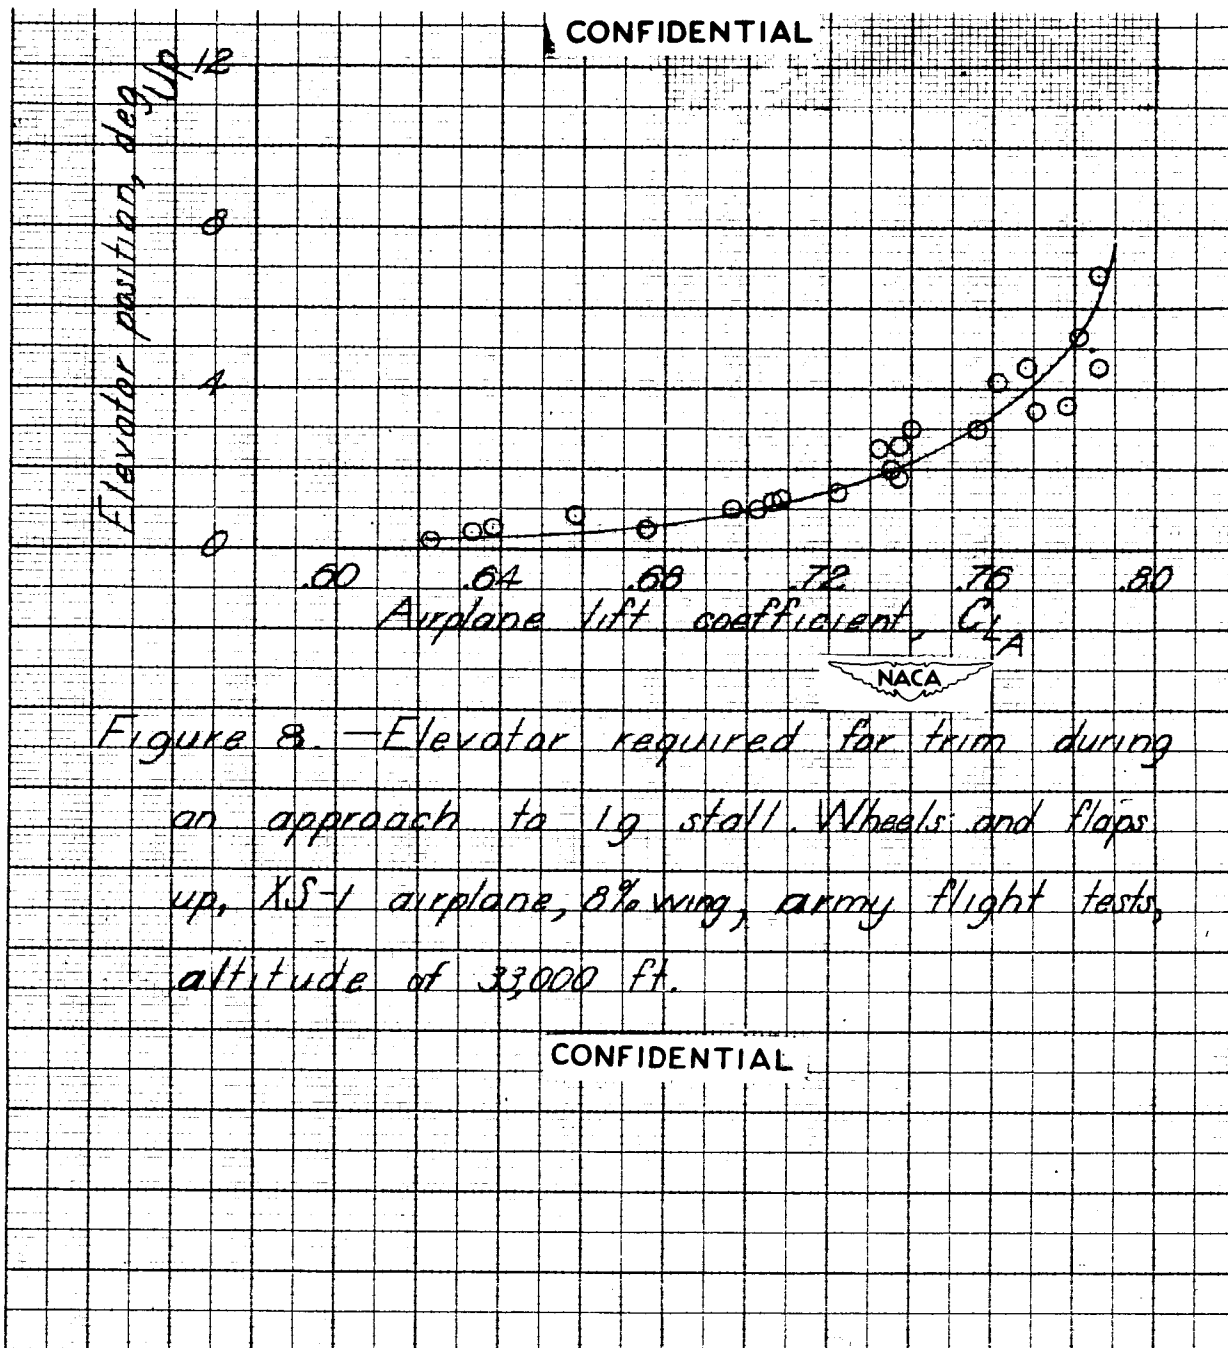 CONFIDENTIAL
Elevator position, deg
Up
12
8
4
0
.60 .64 .68 .72 .76 .80
Airplane lift coefficient, CLA
NACA
Figure 8. — Elevator required for trim during
an approach to 1g stall. Wheels and flaps
up, XS-1 airplane, 8% wing, army flight tests,
altitude of 33,000 ft.
CONFIDENTIAL